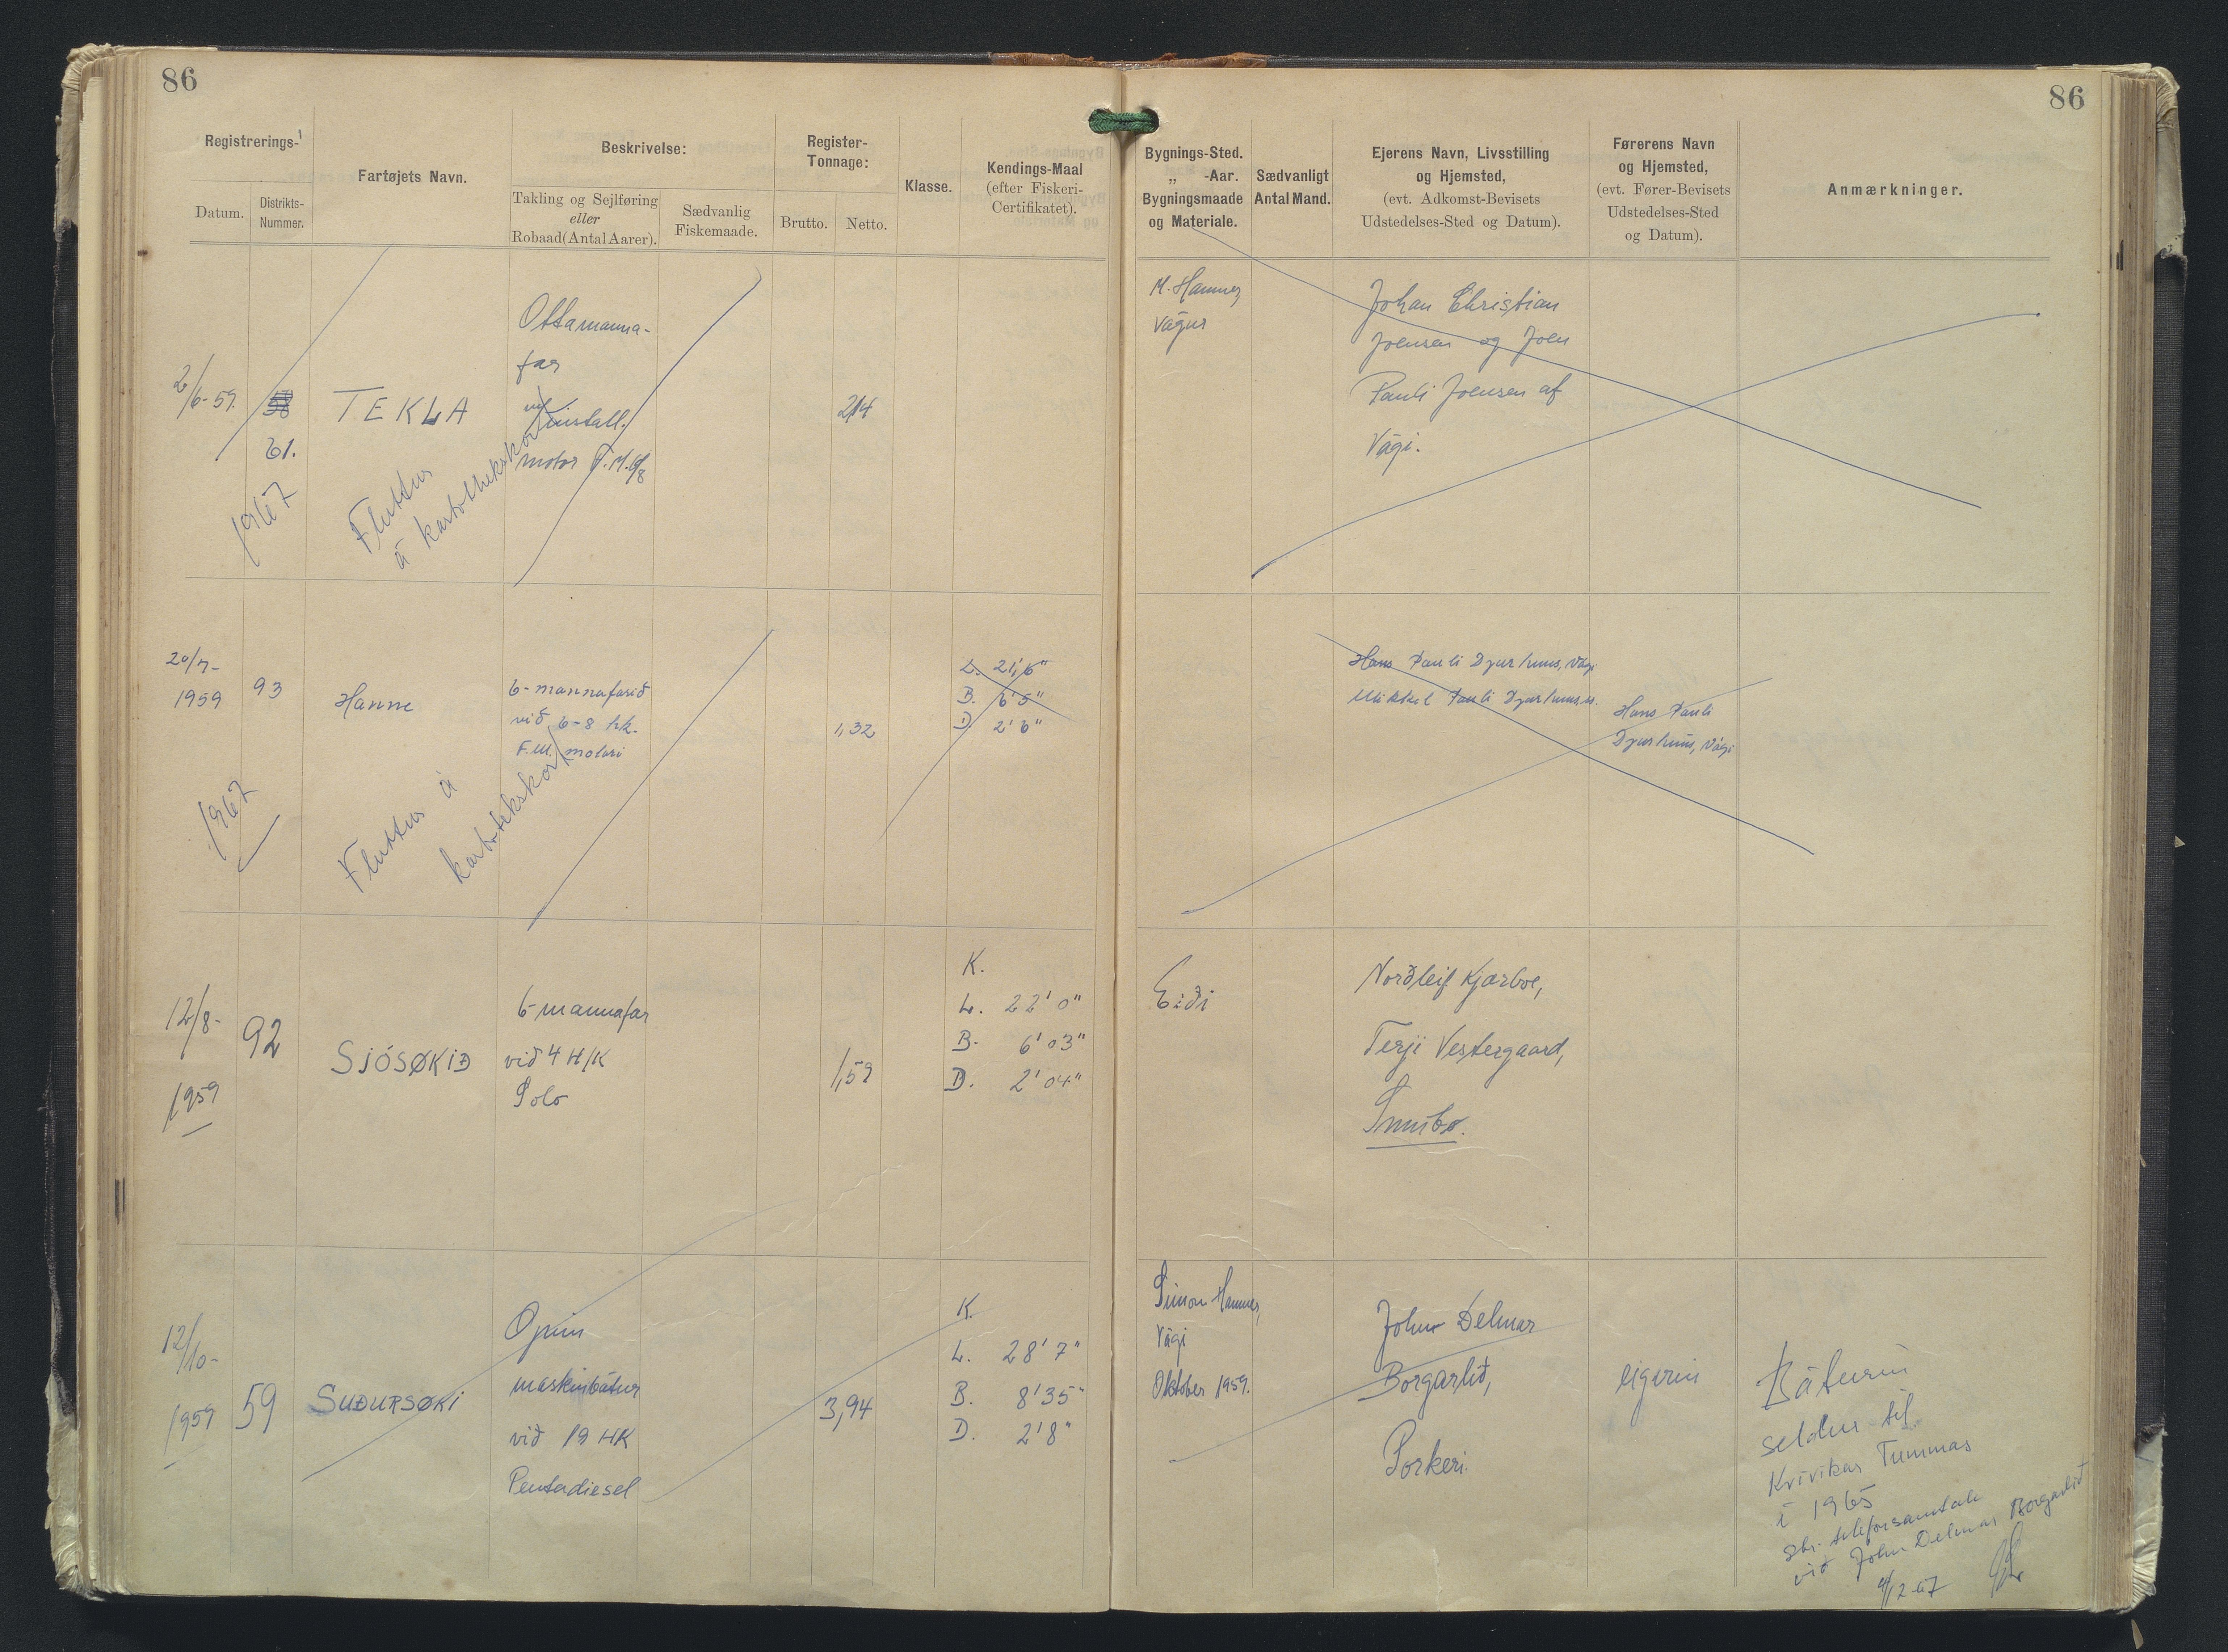 86
86
Registrerings-
Datum.
Distrikts-
Nummer.
Fartøjets Navn.
Beskrivelse:
Takling og Sejlføring
eller
Robaad (Antal Aarer).
Sædvanlig
Fiskemaade.
Register-
Tonnage:
Brutto.
Netto.
Klasse.
Kendings-Maal
(efter Fiskeri-
Certifikatet).
Bygnings-Sted.
„ -Aar.
Bygningsmaade
og Materiale.
Sædvanligt
Antal Mand.
Ejerens Navn, Livsstilling
og Hjemsted,
(evt. Adkomst-Bevisets
Udstedelses-Sted og Datum).
Førerens Navn
og Hjemsted,
(evt. Fører-Bevisets
Udstedelses-Sted
og Datum).
Anmærkninger.
2/6-59.
58
61.
TEKLA
Ottamanna-
far
m/install.
motor F.M. 6/8
2,14
M. Hammer,
Vágur
Johan Christian
Joensen og Joen
Pauli Joensen af
Vági.
1967
Fluttur
á kartotekskort
20/7-
1959
93
Hanne
6-mannafarið
við 6-8 hk.
F.M. motori
1,32
L. 21'6"
B. 6'5"
D. 2'6"
Hans Pauli Djurhuus, Vági
Mikkel Pauli Djurhuus,
Hans Pauli
Djurhuus, Vági
1967
Fluttur á
kartotekskort
12/8-
1959
92
SJÓSØKIÐ
6-mannafar
við 4 H/K
Solo
1,59
K.
L. 22' 0"
B. 6' 03"
D. 2' 04"
Eiði
Norðleif Kjærboe,
Terji Vestergaard,
Sumbø.
12/10-
1959
59
SUÐURSØKI
Opin
maskinbátur
við 19 HK
Pentadiesel
3,94
K.
L. 28' 7"
B. 8' 35"
D. 2' 8"
Simon Hammer,
Vági
Oktober 1959.
John Delmar
Borgarlið,
Porkeri.
eigarin
Báturin
seldur til
Kvívíkar Tummas
í 1965
sbr. telefonsamtale
við John Delmar Borgarlið
4/12-67